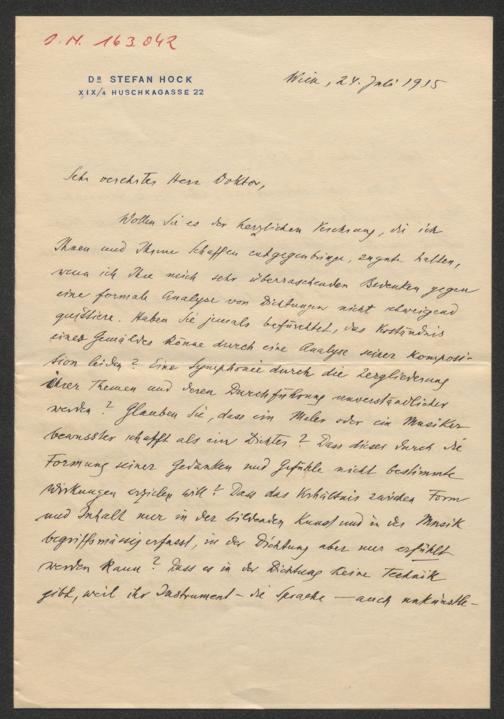 J. N. 163.042
DR STEFAN HOCK
XIX/4 HUSCHKAGASSE 22
Wien, 24. Juli 1915
Sehr verehrter Herr Doktor,
Wollen Sie es der herzlichen Verehrung, die ich
Ihnen und Ihrem Schaffen entgegenbringe, zugute halten,
wenn ich Ihre mich sehr überraschenden Bedenken gegen
eine formale Analyse von Dichtungen nicht schweigend
quittiere. Haben Sie jemals befürchtet, das Verständnis
eines Gemäldes könne durch eine Analyse seiner Komposi-
tion leiden? Eine Symphonie durch die Zergliederung
ihrer Themen und deren Durchführung unverständlicher
werden? Glauben Sie, dass ein Maler oder ein Musiker
bewusster schafft als ein Dichter? Dass dieser durch die
Formung seiner Gedanken und Gefühle nicht bestimmte
Wirkungen erzielen will? Dass das Verhältnis zwischen Form
und Inhalt nur in der bildenden Kunst und in der Musik
begriffsmässig erfasst, in der Dichtung aber nur erfühlt
werden kann? Dass es in der Dichtung keine Technik
gibt, weil ihr Instrument – die Sprache – auch unkünstle-